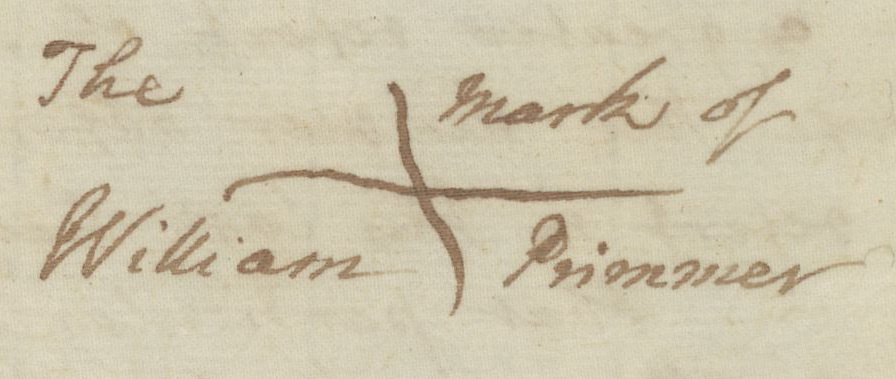 The mark of
William Primmer